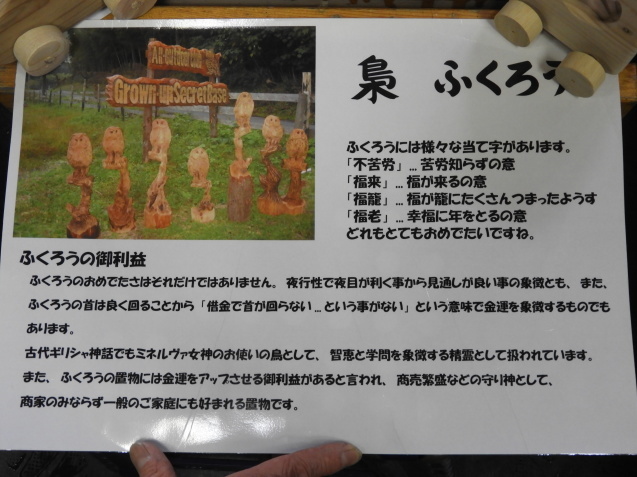 Grown-upSecretBase
梟 ふくろう
ふくろうには様々な当て字があります。
「不苦労」...苦労知らずの意
「福来」...福が来るの意
「福籠」...福が籠にたくさんつまったようす
「福老」...幸福に年をとるの意
どれもとてもおめでたいですね。
ふくろうの御利益
ふくろうのおめでたさはそれだけではありません。夜行性で夜目が利く事から見通しが良い事の象徴とも、また、
ふくろうの首は良く回ることから「借金で首が回らない...という事がない」という意味で金運を象徴するものでも
あります。
古代ギリシャ神話でもミネルヴァ女神のお使いの鳥として、智恵と学問を象徴する精霊として扱われています。
また、ふくろうの置物には金運をアップさせる御利益があると言われ、商売繁盛などの守り神として、
商家のみならず一般のご家庭にも好まれる置物です。